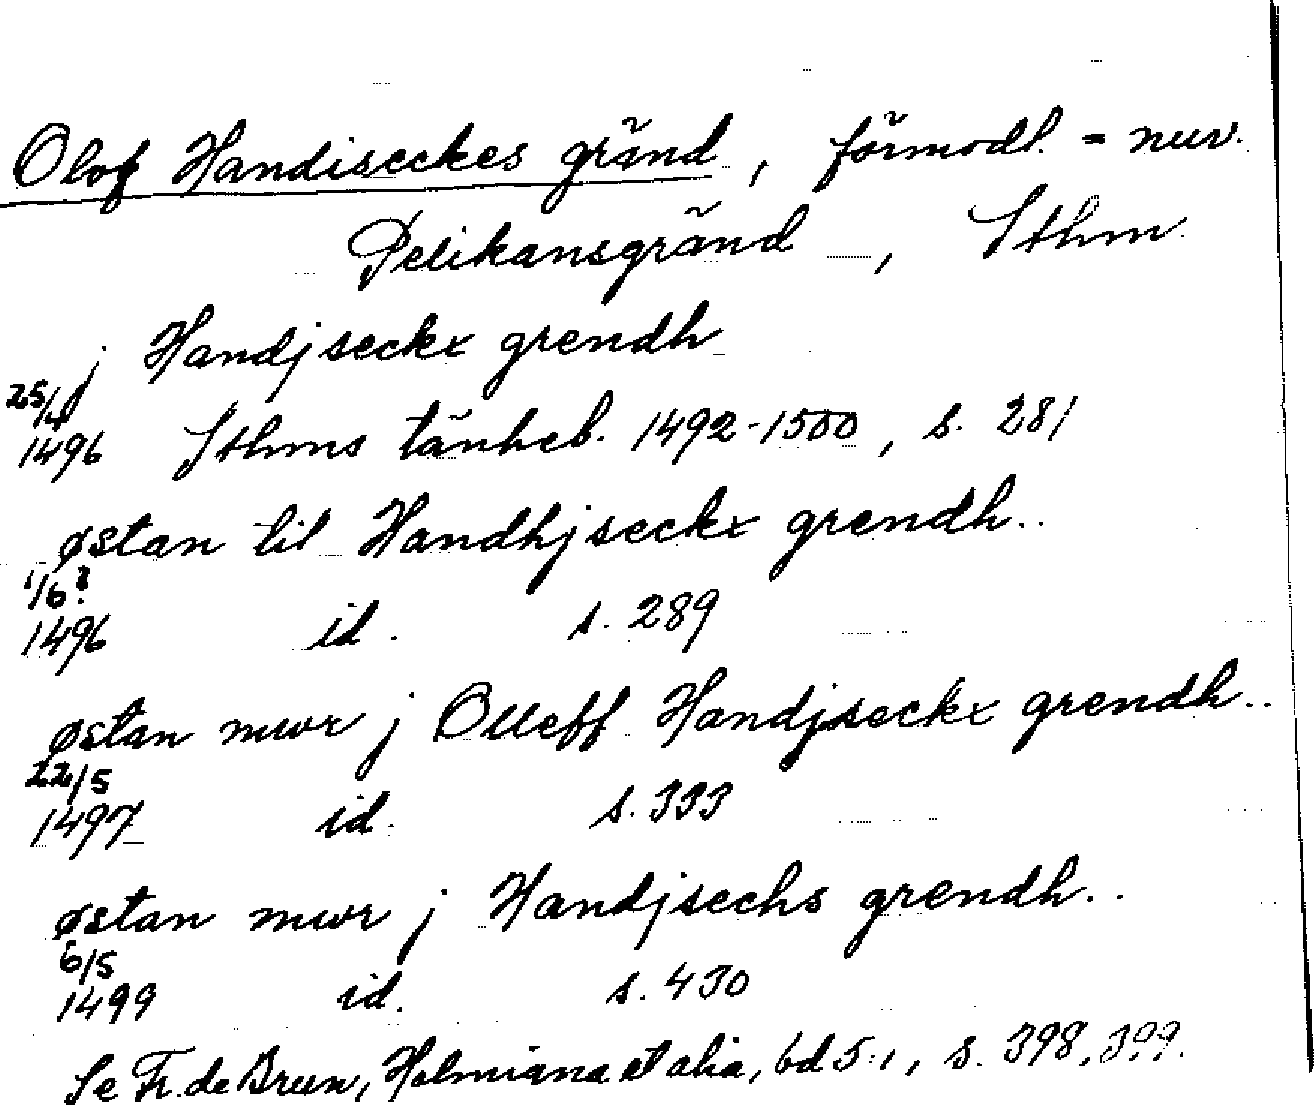 Olof Handiseckes gränd, förmodl. = nuv.
Pelikansgränd, Sthm
j Handjseckx grendh
25/4
1496 Sthms tänkeb. 1492-1500, s. 281
østan til Handhjseckx grendh..
1/6?
1496 id. s. 289
østan mwr j Olleff Handjseckx grendh..
22/5
1497 id. s. 333
østan mwr j Handjsechs grendh..
6/5
1499 id. s. 430
Se Fr. de Brun, Holmiana et alia, bd 5:1, s. 398, 399.